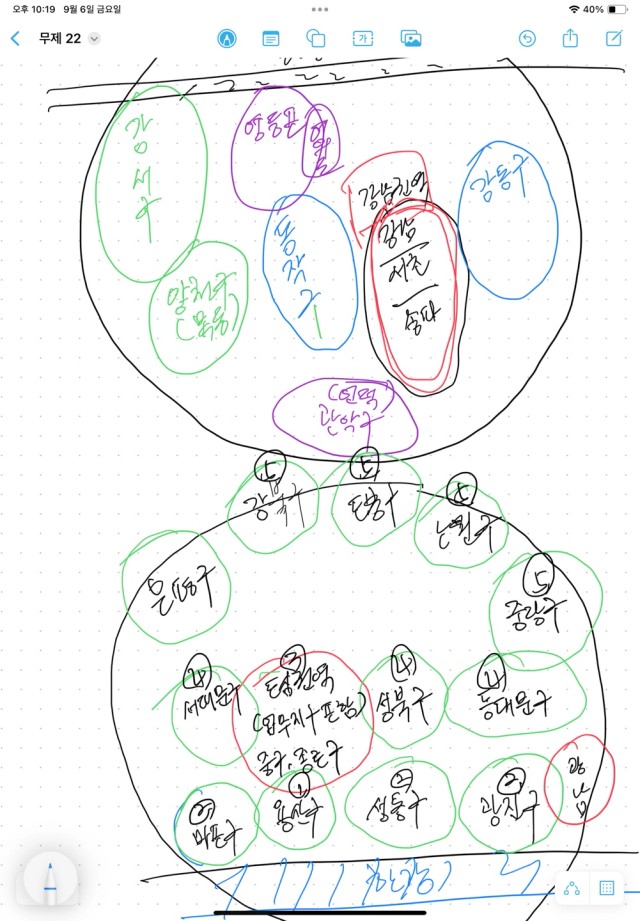 오후 10:19 9월 6일 금요일
40%
무제 22
가
강서구
영등포
여의도
강남권역
강동구
동작구
강남
서초
송파
양천구
(목동)
관악구
⑤ ⑤ ⑤
강북구 도봉구 노원구
은평구
⑤
중랑구
④ ③ ④ ④
서대문구 도심권역 성북구 동대문구
(업무지구 포함)
중구, 종로구
① ②
마포구 용산구 성동구 광진구
한강